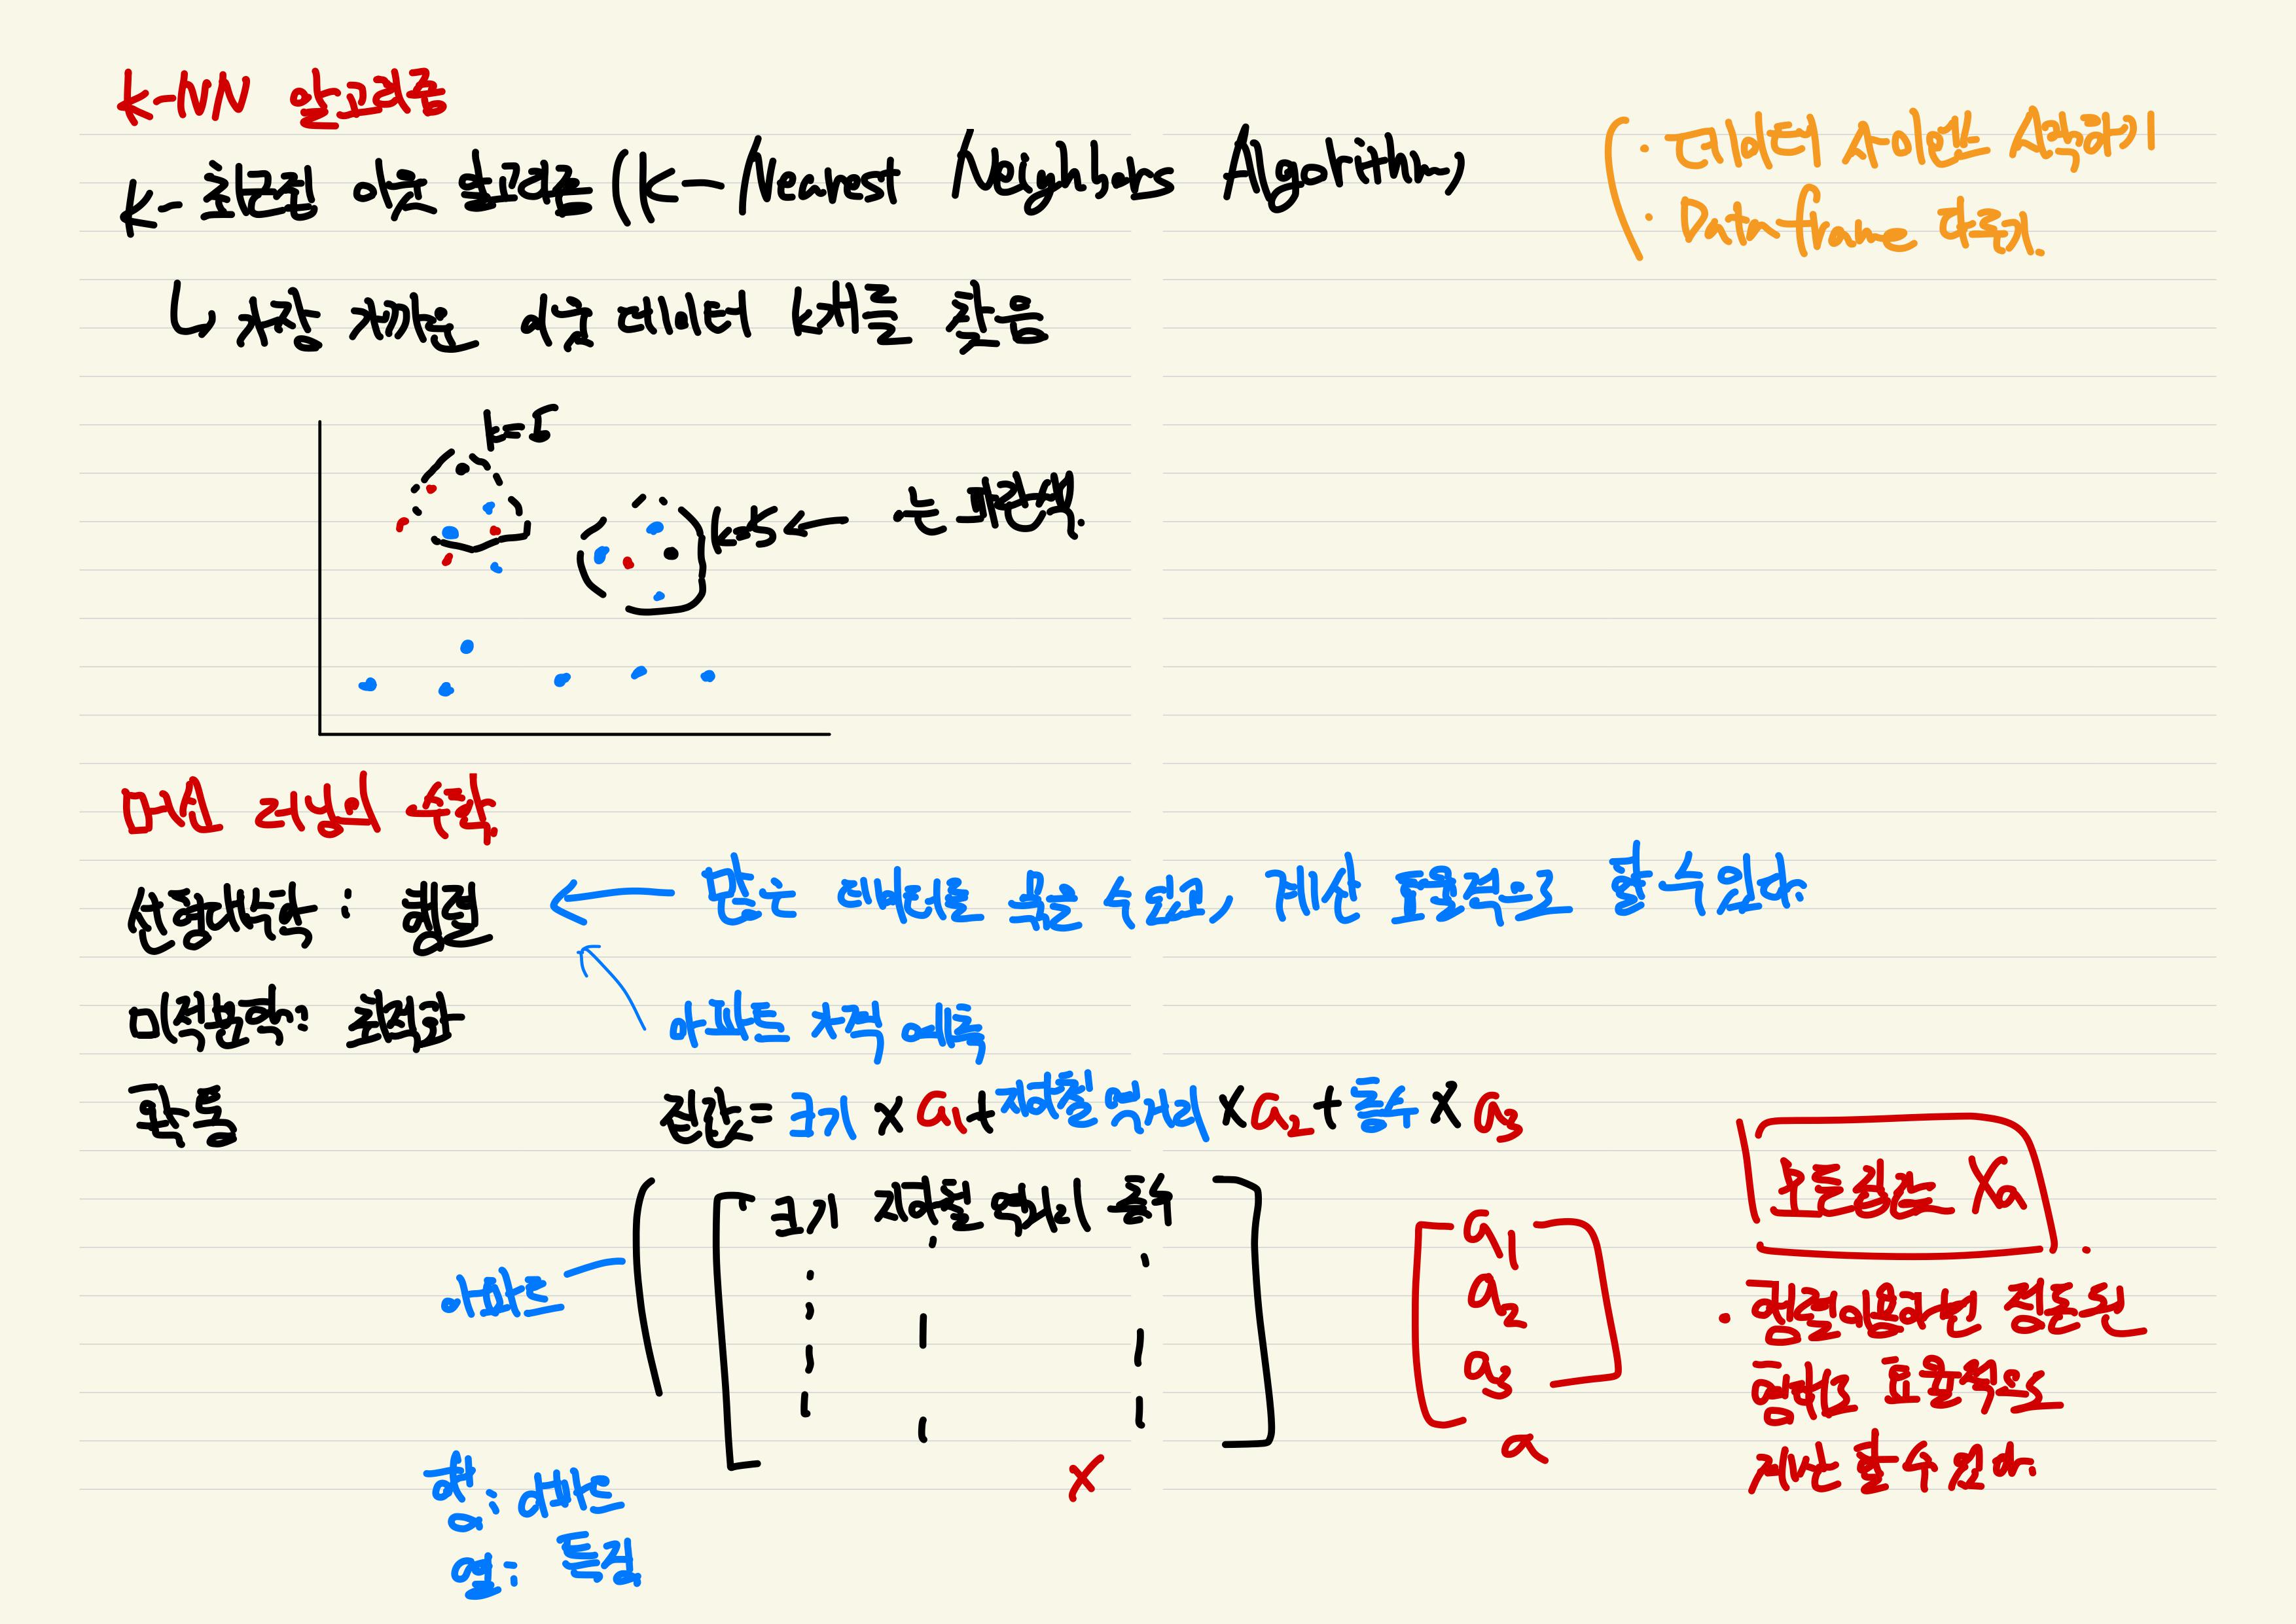 K-NN 알고리즘
K- 최근접 이웃 알고리즘 (K-Nearest Neighbors Algorithm)
· 데이터 사이언스 시작하기
· Dataframe 다루기.
↳ 가장 가까운 이웃 데이터 k개를 찾음
k=5
k=5 ← 는 파란색.
머신 러닝의 수학
선형대수학 : 행렬 ← 많은 데이터를 묶을 수 있고, 계산 효율적으로 할 수 있다.
미적분학: 최적화
아파트 가격 예측
확률
집값 = 크기 x a1 + 지하철역거리 x a2 + 층수 x a3
크기 지하철 역거리 층수
모든집값은 Xa
a1
a2
a3
아파트
· 행렬이용하면 정돈된
형태로 효율적으로
계산 할 수 있다.
X
a
행 : 아파트
열 : 특징